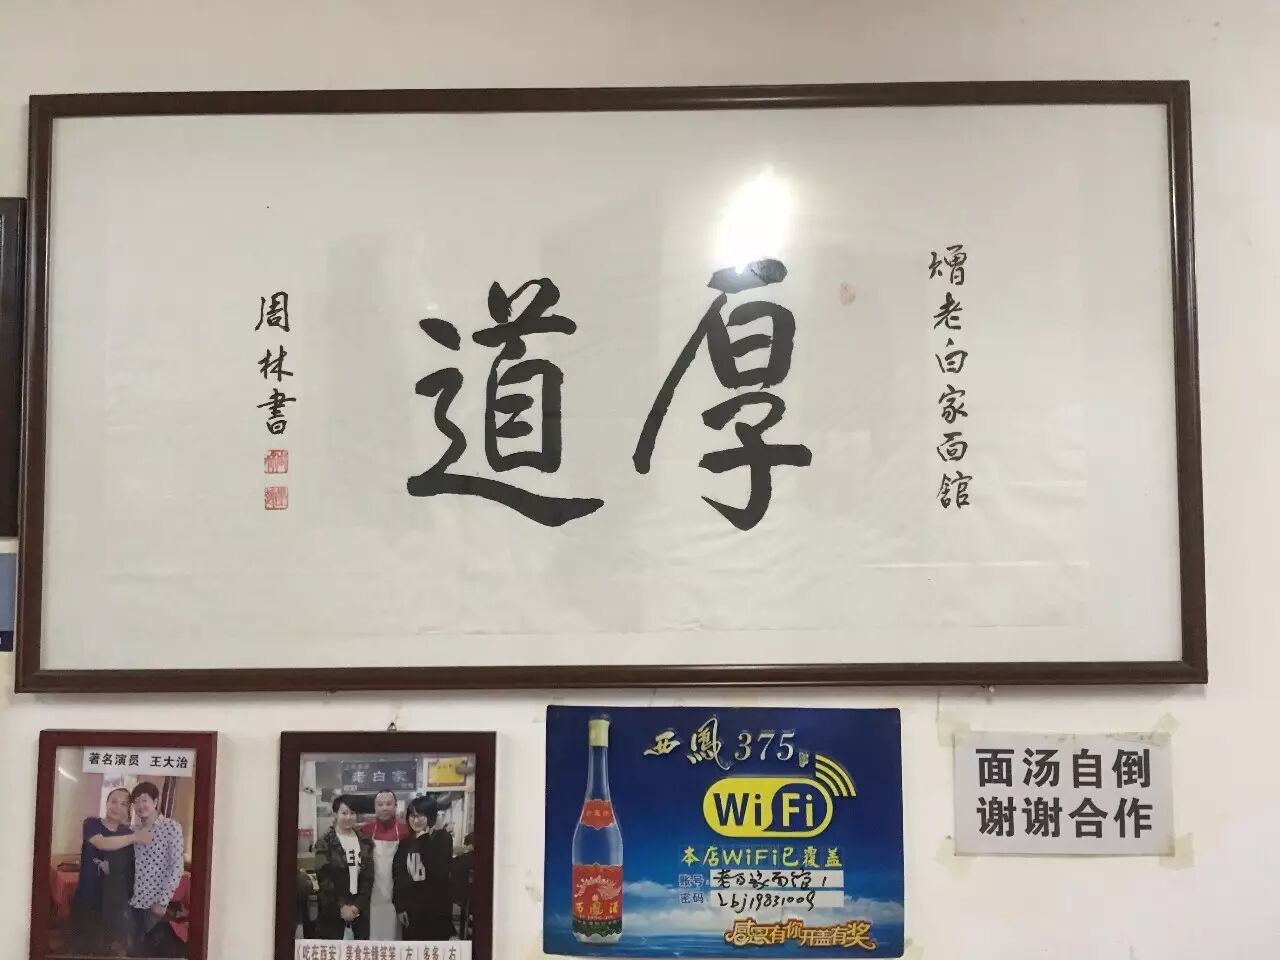 熷老白家面舘
厚道
周林書
著名演员 王大治
老白家
《吃在西安》美食先锋笑笑(左)多多(右)
西鳳375
WiFi
本店WiFi已覆盖
账号: 老白家面馆1
密码: Lbj19831009
西鳳酒
感恩有你开盖有奖
面汤自倒
谢谢合作